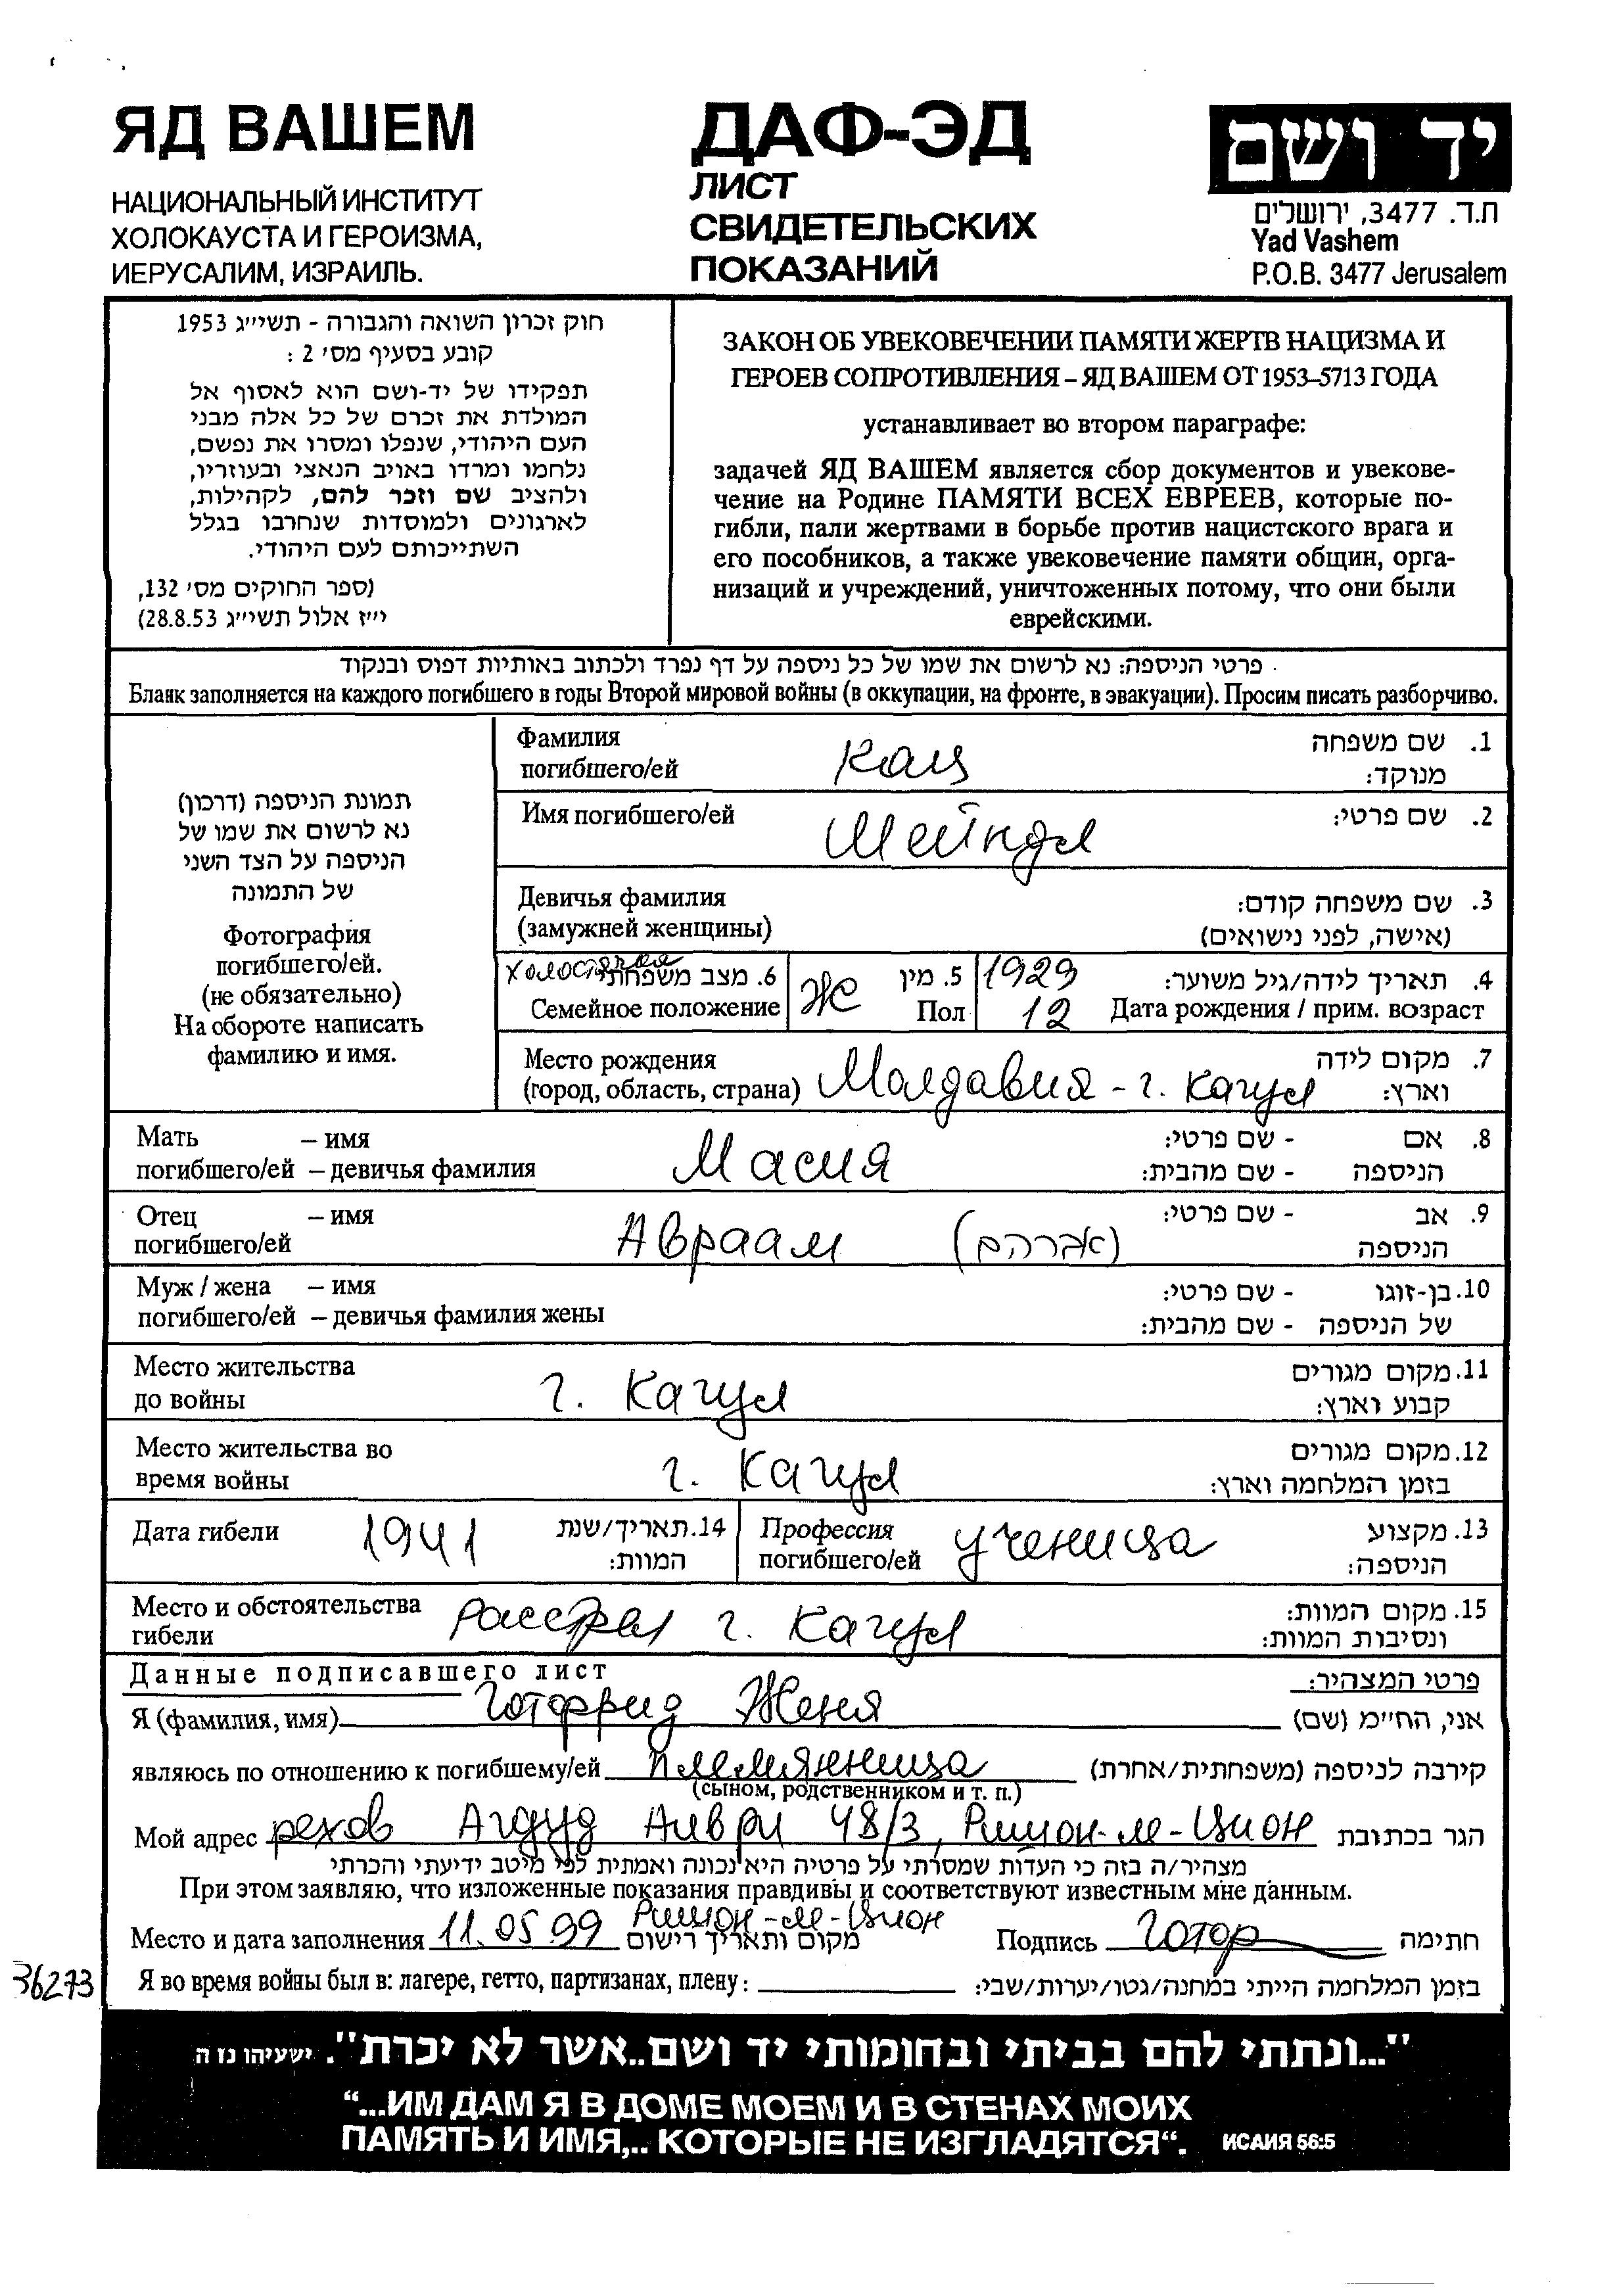 ЯД ВАШЕМ
НАЦИОНАЛЬНЫЙ ИНСТИТУТ
ХОЛОКАУСТА И ГЕРОИЗМА,
ИЕРУСАЛИМ, ИЗРАИЛЬ.
ДАФ-ЭД
ЛИСТ
СВИДЕТЕЛЬСКИХ
ПОКАЗАНИЙ
יד ושם
ת.ד. 3477, ירושלים
Yad Vashem
P.O.B. 3477 Jerusalem
חוק זכרון השואה והגבורה - תשי״ג 1953
קובע בסעיף מס׳ 2 :
תפקידו של יד-ושם הוא לאסוף אל
המולדת את זכרם של כל אלה מבני
העם היהודי, שנפלו ומסרו את נפשם,
נלחמו ומרדו באויב הנאצי ובעוזריו,
ולהציב שם וזכר להם, לקהילות,
לארגונים ולמוסדות שנחרבו בגלל
השתייכותם לעם היהודי.
(ספר החוקים מס׳ 132,
י״ז אלול תשי״ג 28.8.53)
ЗАКОН ОБ УВЕКОВЕЧЕНИИ ПАМЯТИ ЖЕРТВ НАЦИЗМА И
ГЕРОЕВ СОПРОТИВЛЕНИЯ – ЯД ВАШЕМ ОТ 1953–5713 ГОДА
устанавливает во втором параграфе:
задачей ЯД ВАШЕМ является сбор документов и увекове-
чение на Родине ПАМЯТИ ВСЕХ ЕВРЕЕВ, которые по-
гибли, пали жертвами в борьбе против нацистского врага и
его пособников, а также увековечение памяти общин, орга-
низаций и учреждений, уничтоженных потому, что они были
еврейскими.
פרטי הניספה: נא לרשום את שמו של כל ניספה על דף נפרד ולכתוב באותיות דפוס ובנקוד
Бланк заполняется на каждого погибшего в годы Второй мировой войны (в оккупации, на фронте, в эвакуации). Просим писать разборчиво.
תמונת הניספה (דרכון)
נא לרשום את שמו של
הניספה על הצד השני
של התמונה
Фотография
погибшего/ей.
(не обязательно)
На обороте написать
фамилию и имя.
Фамилия
погибшего/ей Кац
1. שם משפחה
מנוקד:
Имя погибшего/ей Шейндл 2. שם פרטי:
Девичья фамилия
(замужней женщины)
3. שם משפחה קודם:
(אישה, לפני נישואים)
холостячая 6. מצב משפחתי
Семейное положение
Ж 5. מין
Пол
1929 4. תאריך לידה/גיל משוער:
12 Дата рождения / прим. возраст
Место рождения
(город, область, страна) Молдавия - г. Кагул
7. מקום לידה
וארץ:
Мать – имя
погибшего/ей – девичья фамилия Масия
8. אם - שם פרטי:
הניספה - שם מהבית:
Отец – имя
погибшего/ей Авраам (אברהם)
9. אב - שם פרטי:
הניספה
Муж / жена – имя
погибшего/ей – девичья фамилия жены
10. בן-זוגו - שם פרטי:
של הניספה - שם מהבית:
Место жительства
до войны г. Кагул
11. מקום מגורים
קבוע וארץ:
Место жительства во
время войны г. Кагул
12. מקום מגורים
בזמן המלחמה וארץ:
Дата гибели 1941 14. תאריך/שנת
המוות:
Профессия
погибшего/ей ученица
13. מקצוע
הניספה:
Место и обстоятельства
гибели Расстрел г. Кагул
15. מקום המוות:
ונסיבות המוות:
Данные подписавшего лист פרטי המצהיר:
Я (фамилия, имя) Готфрид Женя אני, החיימ (שם)
являюсь по отношению к погибшему/ей племянница קירבה לניספה (משפחתית/אחרת)
(сыном, родственником и т. п.)
Мой адрес рехов Агдуд Аиври 48/3, Ришон-ле-Цион הגר בכתובת
מצהיר/ה בזה כי העדות שמסרתי על פרטיה היא נכונה ואמתית לפי מיטב ידיעתי והכרתי
При этом заявляю, что изложенные показания правдивы и соответствуют известным мне данным.
Ришон-ле-Цион
Место и дата заполнения 11.05.99 מקום ותאריך רישום Подпись Готф חתימה
36273
Я во время войны был в: лагере, гетто, партизанах, плену: בזמן המלחמה הייתי במחנה/גטו/יערות/שבי:
"...ונתתי להם בביתי ובחומותי יד ושם..אשר לא יכרת". ישעיהו נז ה
“...ИМ ДАМ Я В ДОМЕ МОЕМ И В СТЕНАХ МОИХ
ПАМЯТЬ И ИМЯ,.. КОТОРЫЕ НЕ ИЗГЛАДЯТСЯ“. ИСАИЯ 56:5